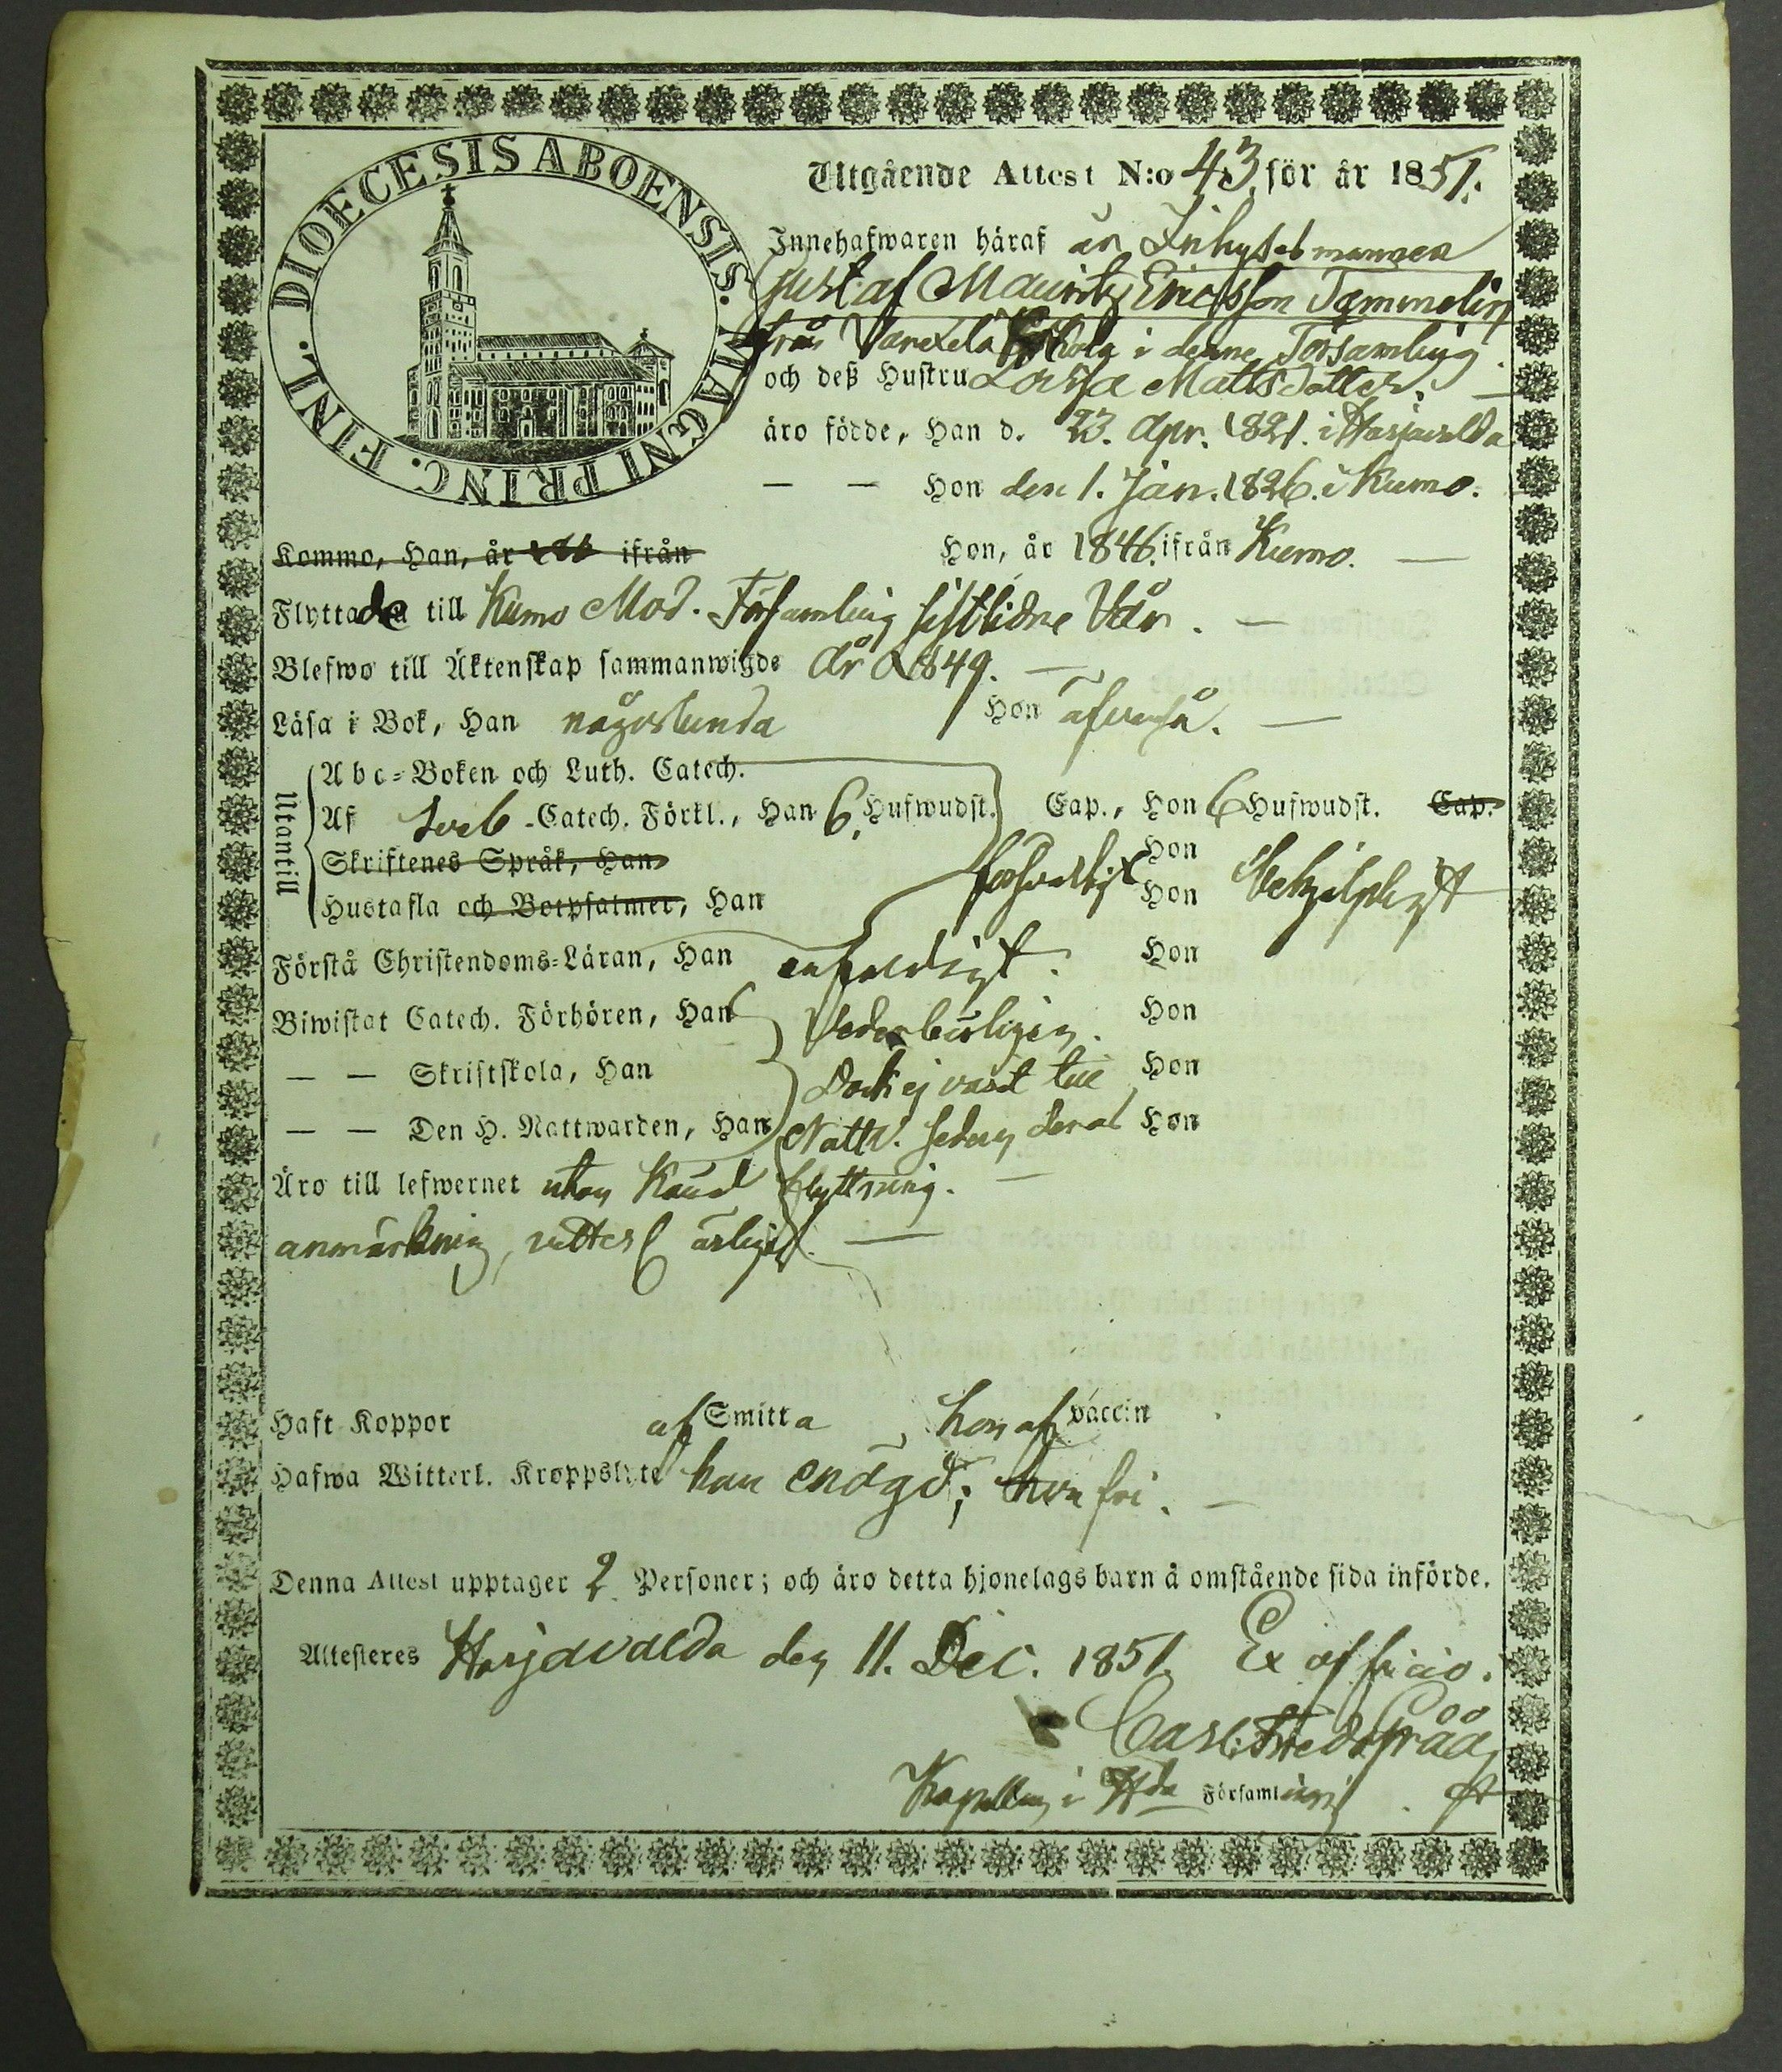 DIOECESIS ABOENSIS. MAGNI PRINC. FINL.
Utgående Attest N:o 43 för år 1851.
Innehafwaren häraf är Inhyses mannen
Gustaf Mauritz Ericsson Tammelin
från Varexela i denne Församling
och deß Hustru Lovisa Matts dotter.
äro födde, Han d. 23. Apr. 1821. i Harjavalda
— — Hon den 1. Jan. 1826. i Kumo.
Kommo, Han, år ifrån Hon, år 1846. ifrån Kumo. —
Flyttade till Kumo Mod. Församling sistlidne Vår. —
Blefwo till Äktenskap sammanwigde år 1849. —
Läsa i Bok, Han någorlunda Hon äfvenså. —
Utantill
Abc-Boken och Luth. Catech.
Af Sveb. Catech. Förkl., Han 6. Hufwudst. Cap., Hon 6 Hufwudst. Cap.
Skriftenes Språk, Han Hon
Hustafla och Botpsalmer, Han försvarligt Hon behjelpligt
Förstå Christendoms-Läran, Han enfaldigt. Hon
Biwistat Catech. Förhören, Han Vederbörligen. Hon
— — Skriftskola, Han Dock ej varit till Hon
— — Den H. Nattwarden, Han Nattv. sedan deras Hon
Äro till lefwernet utan känd flyttning. —
anmärkning, ärligit. —
Haft Koppor af Smitta, hon af vaccin
Hafwa Witterl. Kroppslyte han enögd; hon fri. —
Denna Attest upptager 2 Personer; och äro detta hjonelags barn å omstående sida införde.
Attesteres Harjavalda den 11. Dec. 1851. Ex officio.
Carl Fred. Språå
Kapellan i Hda Församling.